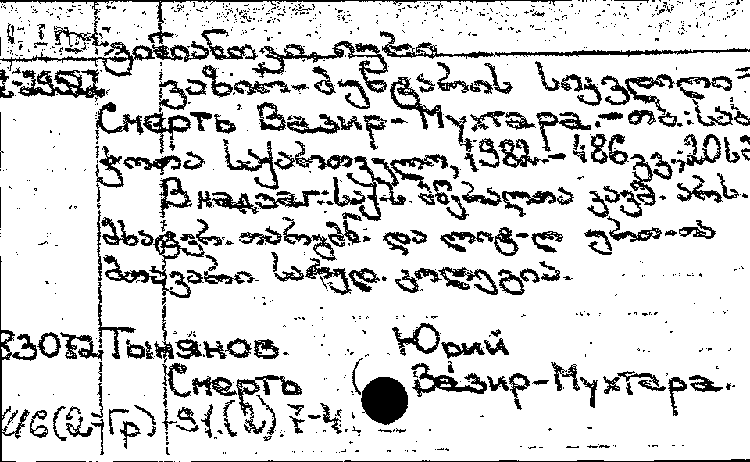 ტინიანოვი, იური
ვაზირ-მუხტარის სიკვდილი=
Смерть Вазир-Мухтара.-თბ.: საბ
ჭოთა საქართველო, 1982.- 486გვ.; 20სმ
В надзаг.: საქ-ს მწერალთა კავშ. არს.
მხატვრ. თარგმნ. და ლიტ-ლ ურთ-თა
მთავარი სარედ. კოლეგია.
83072 Тынянов. Юрий
Смерть Вазир-Мухтара.
И6(2=Гр)-91.(2) 7-4.